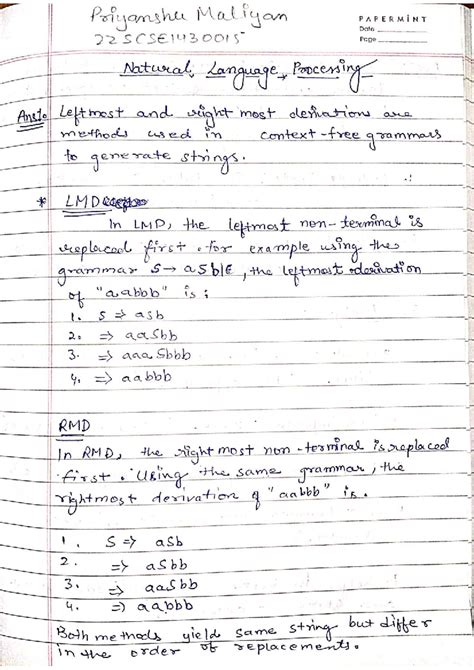 Priyanshu Maliyan
22SCSE1430015
PAPERMINT
Date
Page
Natural Language Processing
Ans1. Leftmost and right most derivations are
methods used in context-free grammars
to generate strings.
* LMD
In LMD, the leftmost non-terminal is
replaced first. for example using the
grammar S → aSb|E, the leftmost derivation
of "aabbb" is:
1. S ⇒ asb
2. ⇒ aaSbb
3. ⇒ aaaSbbb
4. ⇒ aabbb
RMD
In RMD, the right most non-terminal is replaced
first. Using the same grammar, the
rightmost derivation of "aabbb" is.
1. S ⇒ aSb
2. ⇒ aSbb
3. ⇒ aaSbb
4. ⇒ aabbb
Both methods yield same string but differ
in the order of replacements.